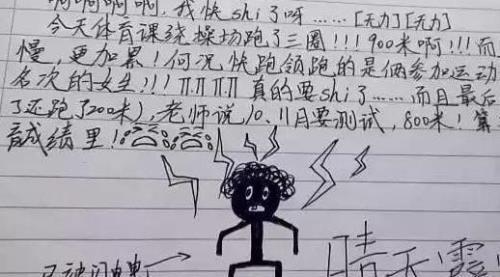 啊啊啊啊,我快shi了呀……[无力][无力]
今天体育课绕操场跑了三圈!!!900米啊!!!而
慢,更加累!何况快跑领跑的是俩参加运动
名次的女生!!!TT TT TT TT 真的要shi了……而且最后
了还跑了200米),老师说,10、11月要测试,800米!算
育成绩里!
已被闪电
晴天霹